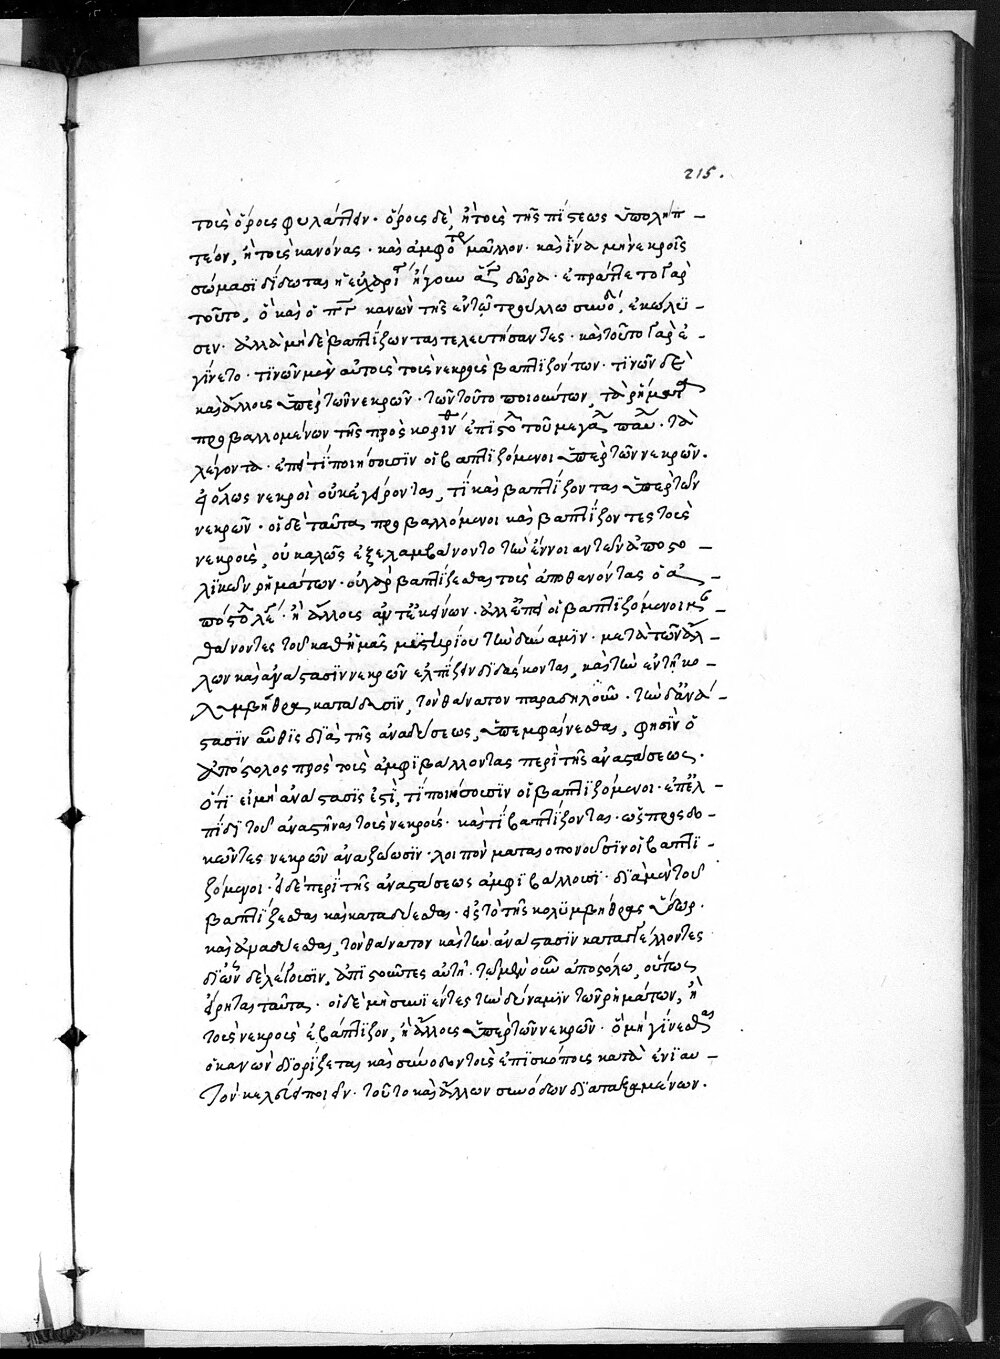 215.
τοὺς ὅρους φυλάττειν· ὅρους δὲ, ἢ τοὺς τῆς πίστεως ὑποληπ-
τέον, ἢ τοὺς κανόνας· καὶ μᾶλλον· καὶ ἵνα μὴ νεκροῖς
σώμασι δίδωται ἡ ἤγουν τὰ δῶρα· ἐπράττετο γὰρ
τοῦτο, ὃ καὶ ὁ πγ κανὼν τῆς ἐν τῷ τρούλλω συνόδ, ἐκώλυ-
σεν· ἀλλὰ μὴ δὲ βαπτίζωνται τελευτήσαντες· καὶ τοῦτο γὰρ ἐ-
γίνετο· τινῶν μὲν αὐτοὺς τοὺς νεκροὺς βαπτιζόντων· τινῶν δὲ
καὶ ἄλλους ὑπὲρ τῶν νεκρῶν· τῶν τοῦτο ποιούντων, τὰ ῥήματ
προβαλλομένων τῆς πρὸς κοριν ἐπιστο τοῦ μεγα παυ· τὰ
λέγοντα· ἐπεὶ τί ποιήσουσιν οἱ βαπτιζόμενοι ὑπὲρ τῶν νεκρῶν.
εἰ ὅλως νεκροὶ οὐκ ἐγείρονται, τί καὶ βαπτίζονται ὑπὲρ τῶν
νεκρῶν· οἱ δὲ ταῦτα προβαλλόμενοι καὶ βαπτίζοντες τοὺς
νεκροὺς, οὐ καλῶς ἐξελαμβάνοντο τὴν ἔννοιαν τῶν ἀποστο-
λικῶν ῥημάτων· οὐ γὰρ βαπτίζεσθαι τοὺς ἀποθανόντας ὁ ἀ-
πόστολ λέ· ἢ ἄλλους ἀντ ἐκείνων· ἀλλ ἐπεὶ οἱ βαπτιζόμενοι
τοῦ καθ ἡμᾶς μυστηρίου τὴν δύναμιν· μετὰ τῶν ἄλ-
λων καὶ ἀνάστασιν νεκρῶν ἐλπίζειν διδάσκονται, καὶ τὴν ἐν τῇ κο-
λυμβήθρα κατάδυσιν, τὸν θάνατον παραδηλοῦν· τὴν δ ἀνά-
στασιν αὖθις διὰ τῆς ἀναδύσεως, ὑπεμφαίνεσθαι, φησὶν ὁ
ἀπόστολος πρὸς τοὺς ἀμφιβάλλοντας περὶ τῆς ἀναστάσεως·
ὅτι εἰ μὴ ἀνάστασις ἐστὶ, τί ποιήσουσιν οἱ βαπτιζόμενοι· ἐπ ἐλ-
πίδι τοῦ ἀναστῆναι τοὺς νεκρούς· καὶ τί βαπτίζονται· ὡς προσδο-
κῶντες νεκρῶν ἀναβίωσιν· λοιπὸν ματαιοπονοῦσιν οἱ βαπτι-
ζόμενοι· εἰ δὲ περὶ τῆς ἀναστάσεως ἀμφιβάλλουσι· διὰ μὲν τοῦ
βαπτίζεσθαι καὶ καταδύεσθαι· εἰς τὸ τῆς κολυμβήθρας ὕδωρ·
καὶ ἀναδύεσθαι, τὸν θάνατον καὶ τὴν ἀνάστασιν καταγγέλλοντες
δι ὧν δὲ λέγουσιν, ἀπιστοῦντες αὐτῇ· τῷ μὲν οὖν ἀποστόλω, οὕτως
εἴρηται ταῦτα· οἱ δὲ μὴ συνιέντες τὴν δύναμιν τῶν ῥημάτων, ἢ
τοὺς νεκροὺς ἐβάπτιζον, ἢ ἄλλους ὑπὲρ τῶν νεκρῶν· ὃ μὴ γίνεσθαι
ὁ κανὼν διορίζεται καὶ σύνοδον τοὺς ἐπισκόπους κατὰ ἐνιαυ-
τὸν κελεύει ποιεῖν· τοῦτο καὶ ἄλλων συνόδων διαταξαμένων.